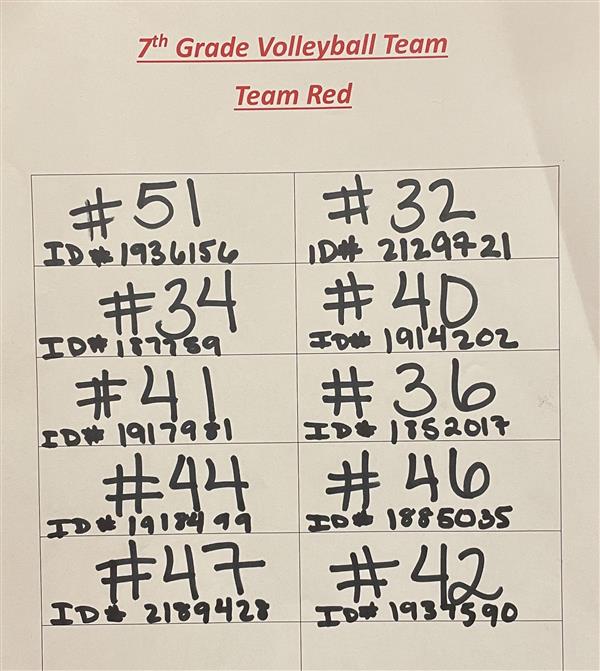 7th Grade Volleyball Team
Team Red
#51 #32
ID# 1936156 ID# 2129721
#34 #40
ID# ID# 1914202
#41 #36
ID# 1917981 ID# 1852017
#44 #46
ID# 1918499 ID# 1885035
#47 #42
ID# 2189428 ID#